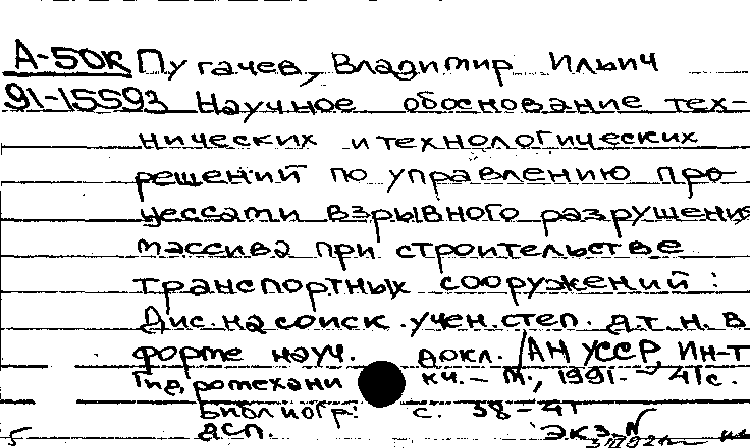 А-50К Пугачев, Владимир Ильич
91-15593 Научное обоснование тех-
нических и технологических
решений по управлению про-
цессами взрывного разрушения
массива при строительстве
транспортных сооружений :
Дис. на соиск. учен. степ. д.т.н. в
форме науч. докл. /АН УССР, Ин-т
Гидромехани ки. - М., 1991. - 41с.
Библиогр: с. 38-41
дсп. экз. N